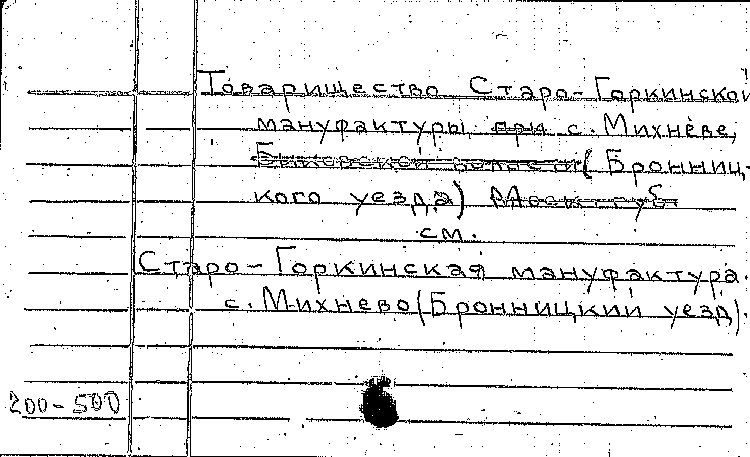 Товарищество Старо-Горкинской
мануфактуры при с. Михневе,
Быковской волости (Бронниц-
кого уезда) Моск. губ.
см.
Старо-Горкинская мануфактура.
с. Михнево (Бронницкий уезд).
200-500